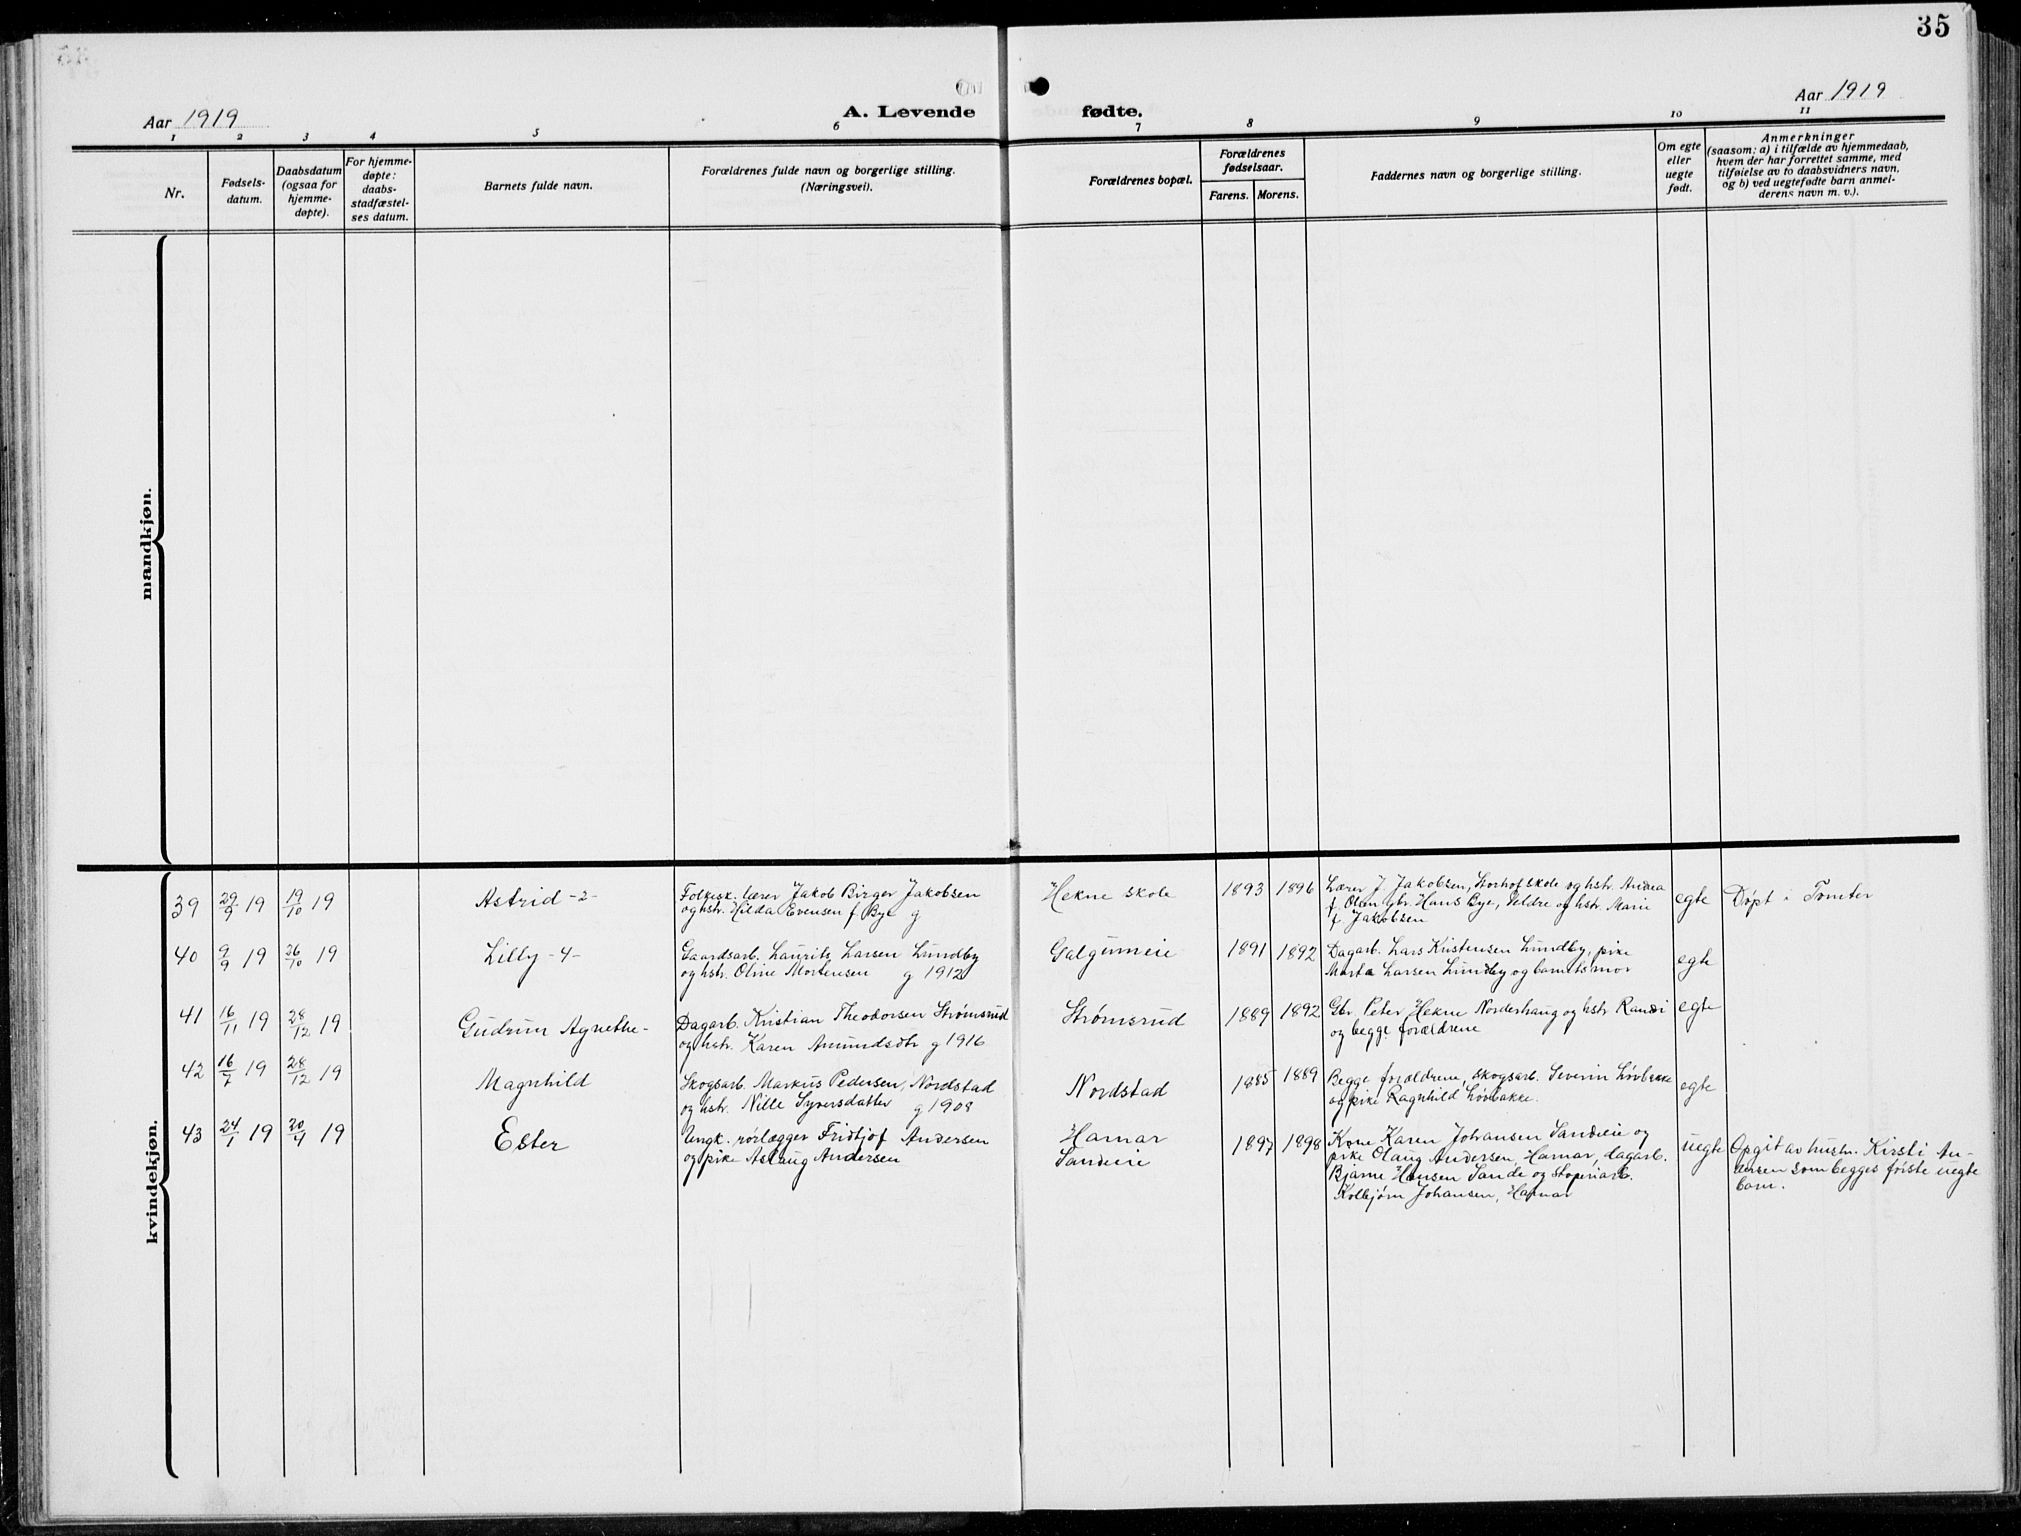 35
Aar 1919
A. Levende
fødte.
Aar 1919
1 2 3 4 5 6 7 8 9 10 11
Nr.
Fødsels-
datum.
Daabsdatum
(ogsaa for
hjemme-
døpte).
For hjemme-
døpte:
daabs-
stadfæstel-
ses datum.
Barnets fulde navn.
Forældrenes fulde navn og borgerlige stilling.
(Næringsvei).
Forældrenes bopæl.
Forældrenes
fødselsaar.
Farens. Morens.
Faddernes navn og borgerlige stilling.
Om egte
eller
uegte
født.
Anmerkninger
(saasom: a) i tilfælde av hjemmedaab,
hvem der har forrettet samme, med
tilføielse av to daabsvidners navn,
og b) ved uegtefødte barn anmel-
derens navn m. v.).
mandkjøn.
kvindekjøn.
39 29/9 19 19/10 19
Astrid -2-
Folkesk. lærer Jakob Birger Jakobsen
og hstr. Hilda Evensen f. Bye g
Hekne skole
1893 1896
Lærer J. Jakobsen, Storhof skole og hstr. Andrea
f. Olsen, gbr. Hans Bye, Veldre og hstr. Marie
f. Jakobsen
egte
Døpt i Tomter
40 9/9 19 26/10 19
Lilly -4-
Gaardsarb. Laurits Larsen Lundby
og hstr. Oline Mortensen g 1912
Galgumeie
1891 1892
Dagarb. Lars Kristensen Lundby, pike
Marta Larsen Lundby og barnets mor
egte
41 16/11 19 28/12 19
Gudrun Agnethe-
Dagarb. Kristian Theodorsen Strømsrud
og hstr. Karen Amundsdtr g 1916
Strømsrud
1889 1892
Gbr. Peter Hekne Norderhaug og hstr. Randi
og begge forældrene
egte
42 16/7 19 28/12 19
Magnhild
Skogsarb. Markus Pedersen, Nordstad
og hstr. Nille Syversdatter g 1908
Nordstad
1885 1889
Begge forældrene, skogsarb. Severin Løvbakke
og pike Ragnhild Løvbakke.
egte
43 24/1 19 20/4 19
Ester
Ungk. rørlægger Fridtjof Andersen
og pike Aslaug Andersen
Hamar
Sandeie
1897 1898
Kone Karen Johansen Sandeie og
pike Olaug Andersen, Hamar, dagarb.
Bjarne Hansen Sande og Støperiarb.
Kolbjørn Johansen, Hamar
uegte
Opgit av hustr. Kirsti An-
dersen som begges første uegte
barn.